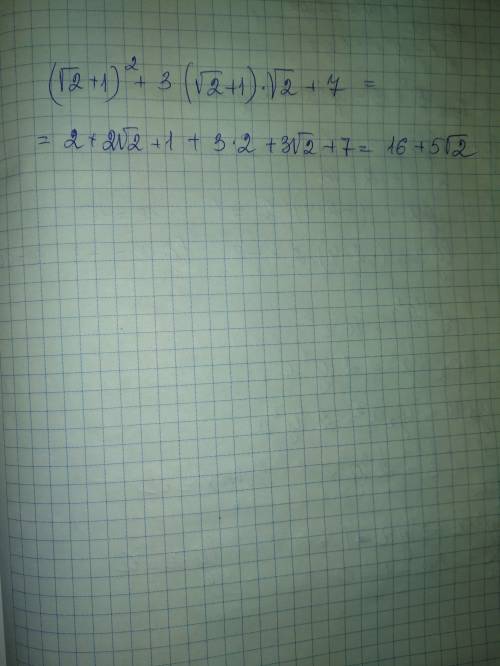 (√2+1)² + 3(√2+1)·√2 + 7 =
= 2+2√2+1 + 3·2+3√2+7= 16+5√2